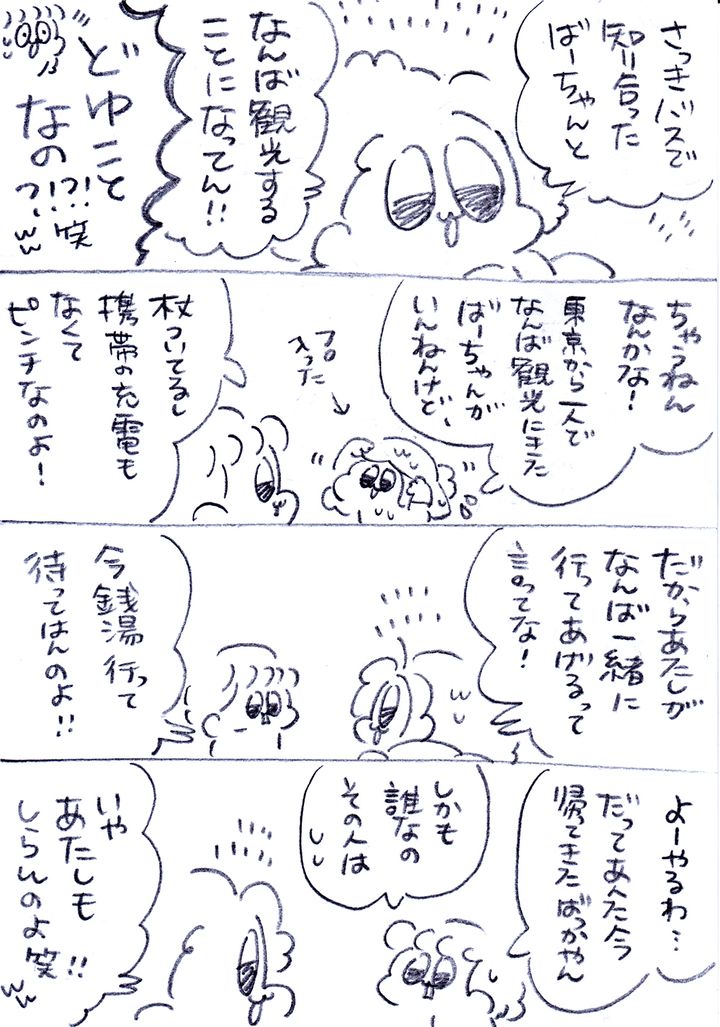 さっきバスで
知り合った
ばーちゃんと
なんば観光する
ことになってん!!
どゆこと
なの?!?!笑
ちゃうねん
なんかな!
東京から一人で
なんば観光にきた
ばーちゃんが
いんねんけど、
フロ
入った
杖ついてるし
携帯の充電も
なくて
ピンチなのよ!
だからあたしが
なんば一緒に
行ってあげるって
言ってな!
今銭湯行って
待ってはんのよ!!
よーやるわ…
だってあんた今
帰ってきたばっかやん
しかも
誰なの
その人は
いや
あたしも
しらんのよ笑!!